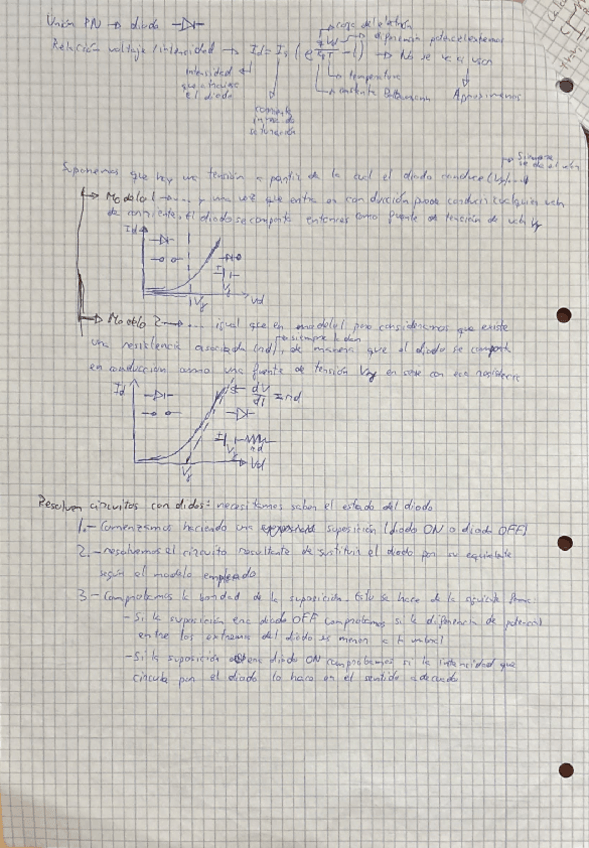 Unión PN → diodo
carga del eletrón
diferencia potencial extremos
Relación voltaje/intensidad → Id = Is (e^{qVd/KT} - 1) → No se va a usar
temperatura
constante Boltzmann
Aproximamos
intensidad que circula por el diodo
corriente inversa de saturación
Siempre se da el valor
Suponemos que hay una tensión a partir de la cual el diodo conduce (Vγ)
→ Modelo 1 → ... y una vez que entra en conducción puede conducir cualquier valor
de corriente. El diodo se comporta entonces como fuente de tensión de valor Vγ
Id
Vγ
Vγ
Vd
→ Modelo 2 → ... igual que en modelo 1 pero consideramos que existe
siempre la dan
una resistencia asociada (rd), de manera que el diodo se comporta
en conducción como una fuente de tensión Vγ en serie con esa resistencia
Id
dV/dI = rd
Vγ
rd
Vγ
Vd
Resolver circuitos con diodos: necesitamos saber el estado del diodo
1.- Comenzamos haciendo una suposición (diodo ON o diodo OFF)
2.- resolvemos el circuito resultante de sustituir el diodo por su equivalente
según el modelo empleado
3.- Comprobamos la bondad de la suposición. Esto se hace de la siguiente forma:
- Si la suposición era diodo OFF comprobamos si la diferencia de potencial
entre los extremos del diodo es menor a la umbral
- Si la suposición era diodo ON comprobamos si la intencidad que
circula por el diodo lo hace en el sentido adecuado